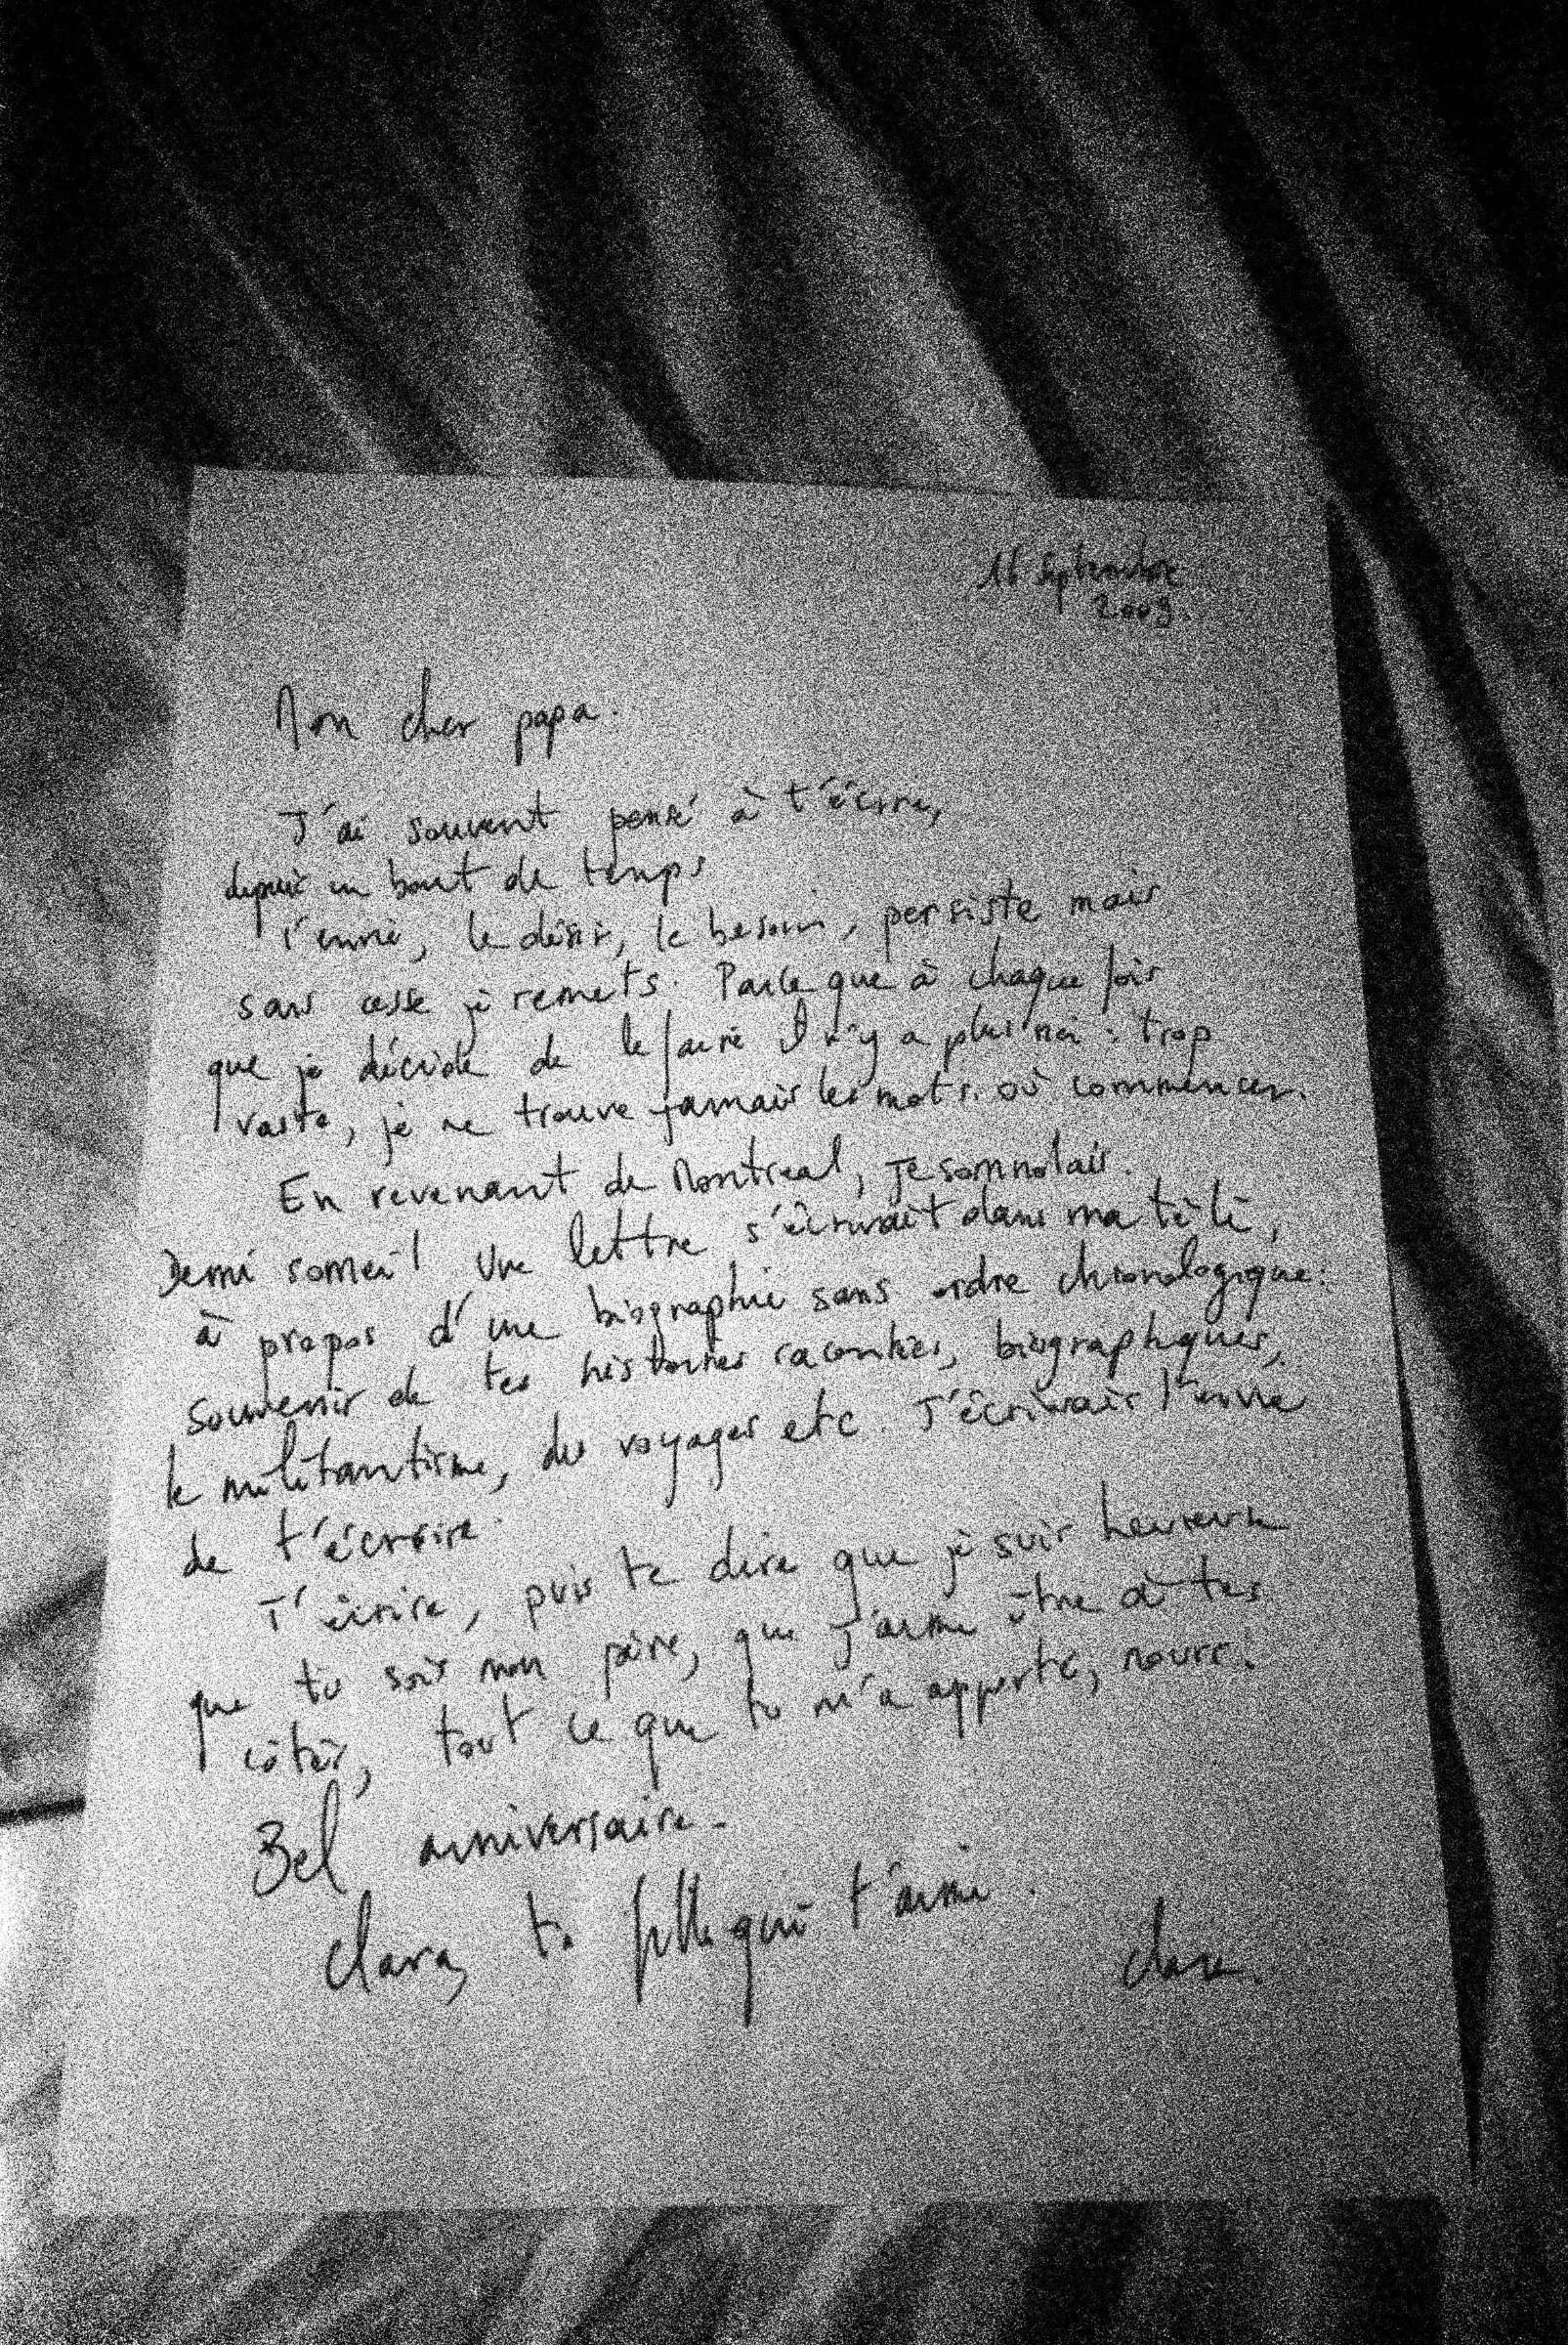 16 Septembre
2009.
Mon cher papa.
J'ai souvent pensé à t'écrire,
depuis un bout de temps
l'envie, le désir, le besoin, persiste mais
sans cesse je remets. Parce que à chaque fois
que je décide de le faire il n'y a plus rien : trop
vaste, je ne trouve jamais les mots. où commencer.
En revenant de Montreal, je somnolais.
Demi someil Une lettre s'écrivait dans ma tête,
à propos d'une biographie sans ordre chronologique:
souvenir de tes histoires racontées, biographiques,
le militantisme, des voyages etc. J'écrivais l'envie
de t'écrire.
T'écrire, puis te dire que je suis heureux
que tu sois mon père, que j'aime être à tes
côtés, tout ce que tu m'a apporté, nourri
Bel anniversaire.
Clara, ta fille qui t'aime.
Clara.